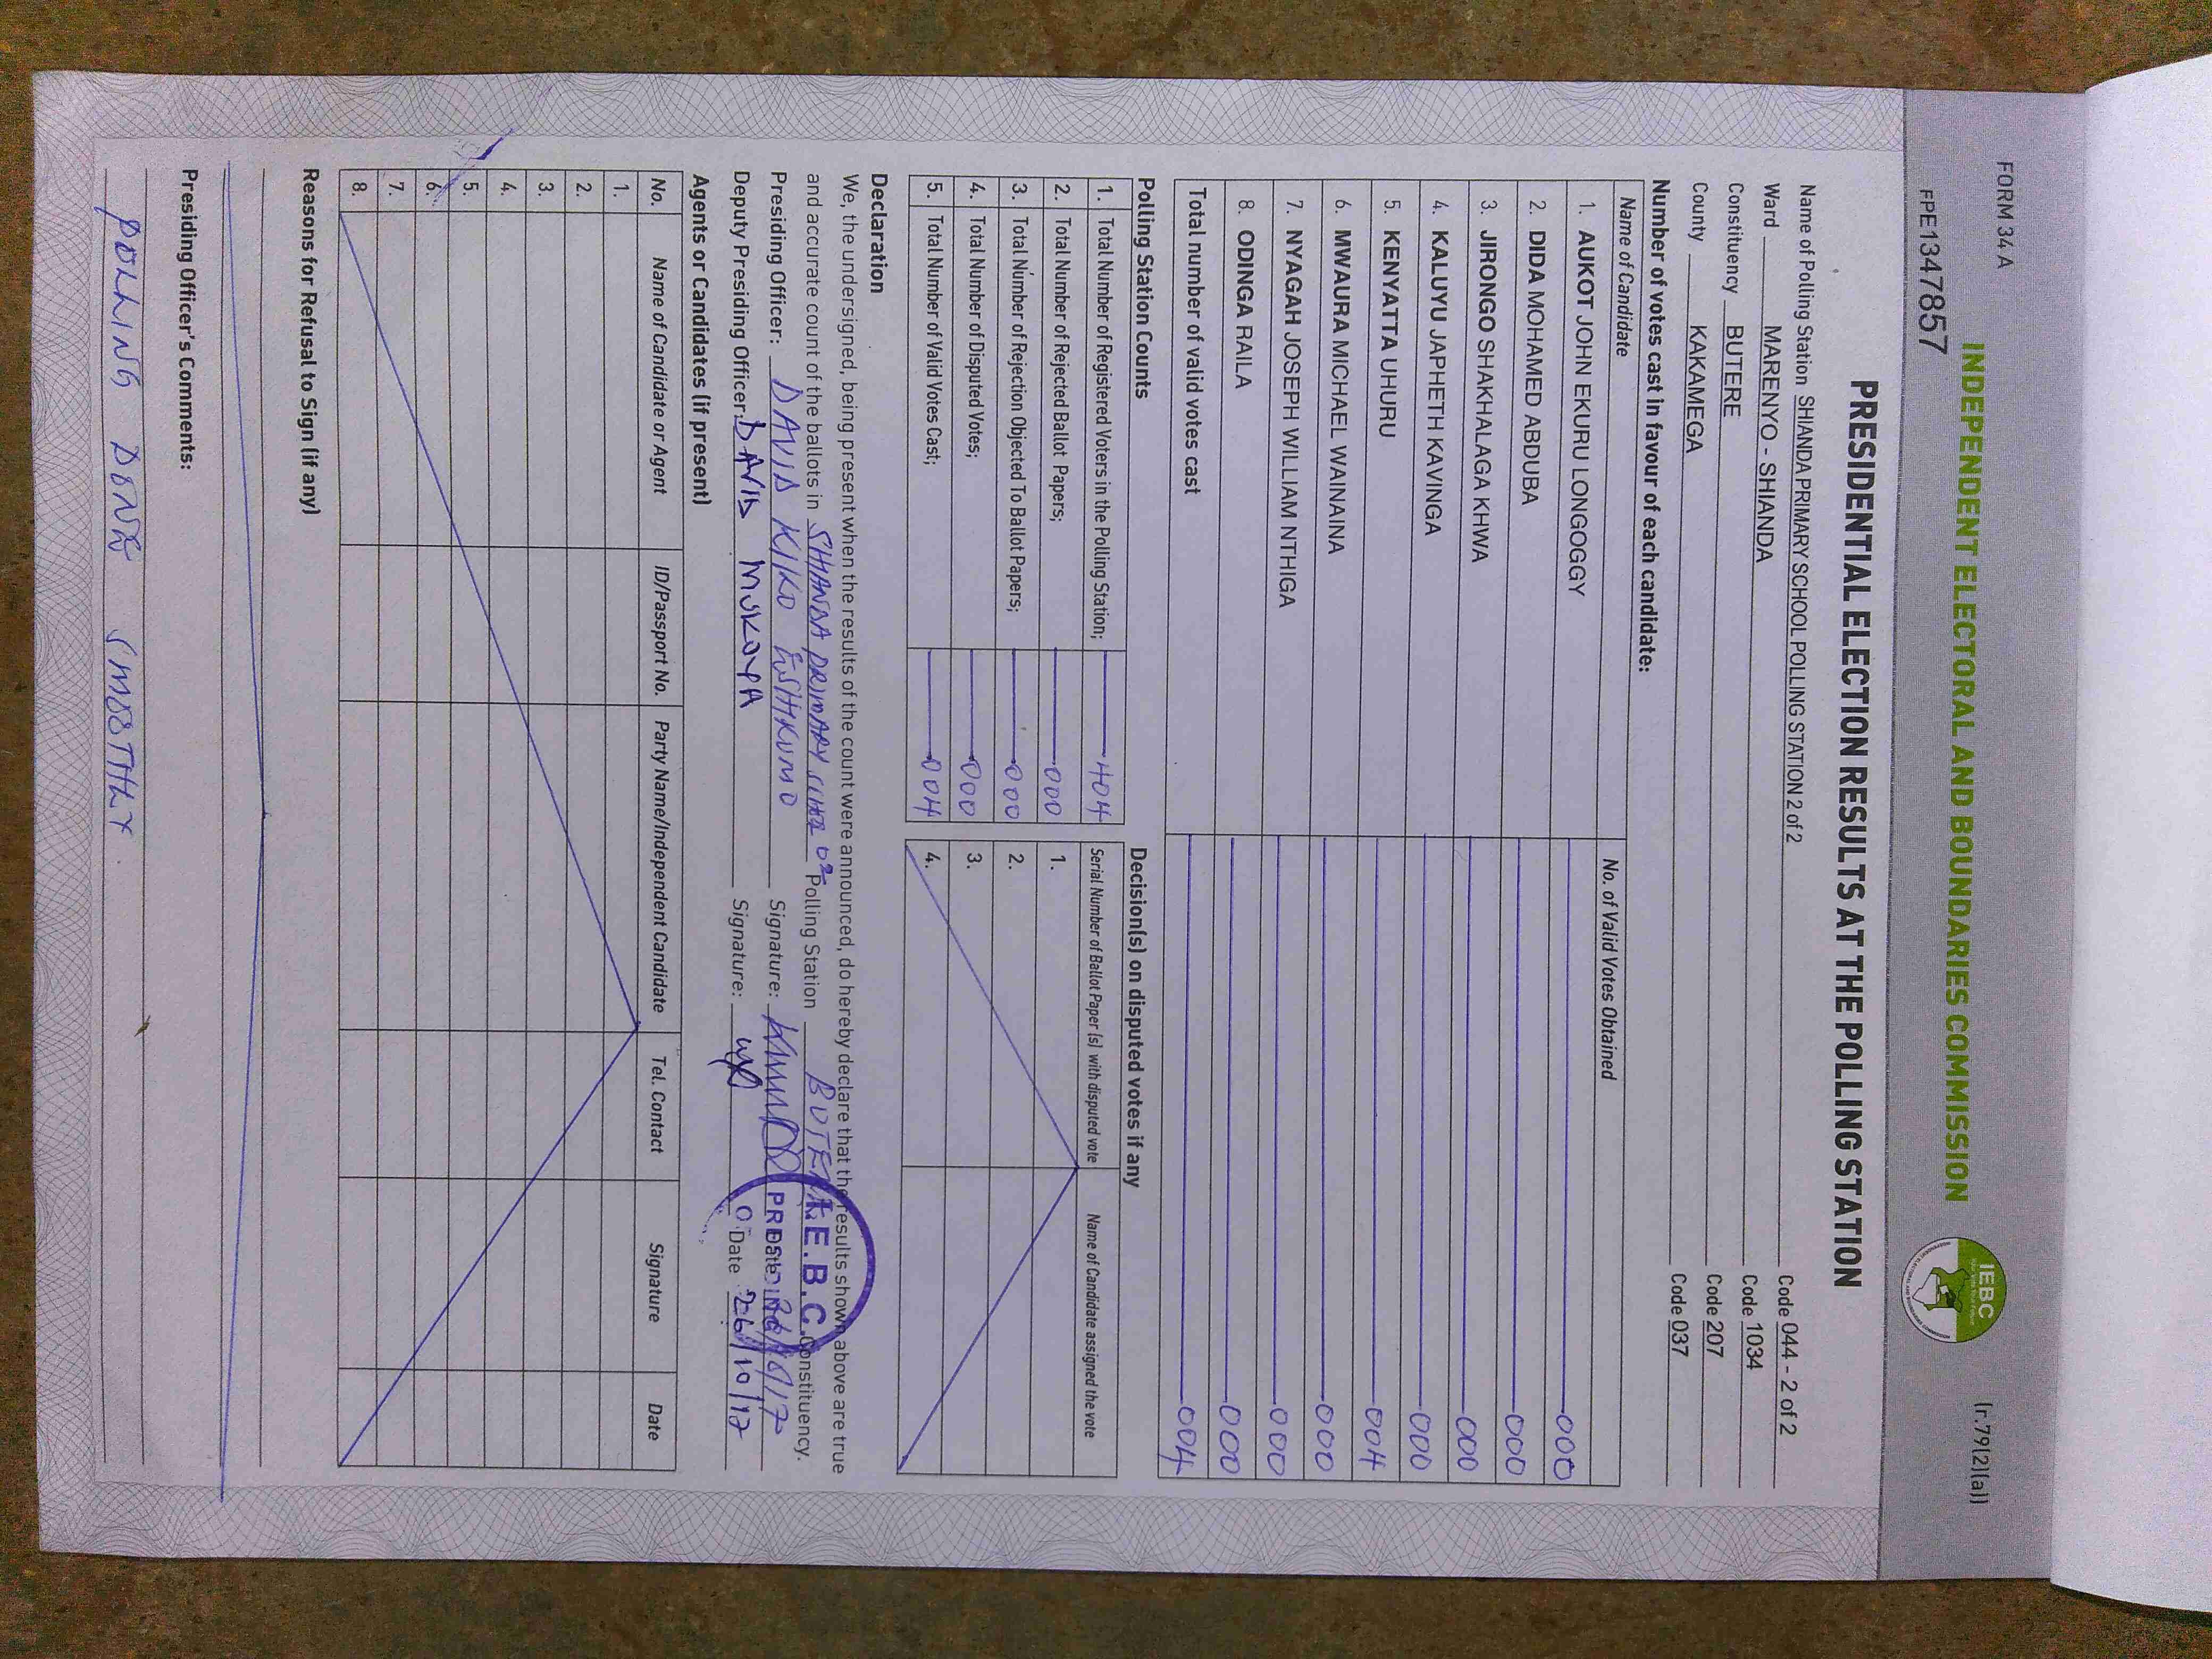 FORM 34A
(r.79(2)(a))
INDEPENDENT ELECTORAL AND BOUNDARIES COMMISSION
IEBC
FPE1347857
PRESIDENTIAL ELECTION RESULTS AT THE POLLING STATION
Name of Polling Station SHIANDA PRIMARY SCHOOL POLLING STATION 2 of 2 Code 044 - 2 of 2
Ward MARENYO - SHIANDA Code 1034
Constituency BUTERE Code 207
County KAKAMEGA Code 037
Number of votes cast in favour of each candidate:
Name of Candidate No. of Valid Votes Obtained
1. AUKOT JOHN EKURU LONGOGGY 000
2. DIDA MOHAMED ABDUBA 000
3. JIRONGO SHAKHALAGA KHWA 000
4. KALUYU JAPHETH KAVINGA 000
5. KENYATTA UHURU 004
6. MWAURA MICHAEL WAINAINA 000
7. NYAGAH JOSEPH WILLIAM NTHIGA 000
8. ODINGA RAILA 000
Total number of valid votes cast 004
Polling Station Counts
1. Total Number of Registered Voters in the Polling Station; 404
2. Total Number of Rejected Ballot Papers; 000
3. Total Number of Rejection Objected To Ballot Papers; 000
4. Total Number of Disputed Votes; 000
5. Total Number of Valid Votes Cast; 004
Decision(s) on disputed votes if any
Serial Number of Ballot Paper (s) with disputed vote Name of Candidate assigned the vote
1.
2.
3.
4.
Declaration
We, the undersigned, being present when the results of the count were announced, do hereby declare that the results shown above are true
and accurate count of the ballots in SHIANDA PRIMARY Polling Station BUTERE Constituency.
Presiding Officer: DAVID KIKO ESHIKUMO Signature: Date 26/10/17
Deputy Presiding Officer: DAVID MUKOYA Signature: Date 26/10/17
I.E.B.C.
PRESIDING
Agents or Candidates (if present)
No. Name of Candidate or Agent ID/Passport No. Party Name/Independent Candidate Tel. Contact Signature Date
1.
2.
3.
4.
5.
6.
7.
8.
Reasons for Refusal to Sign (if any)
Presiding Officer's Comments:
POLLING DONE SMOOTHLY